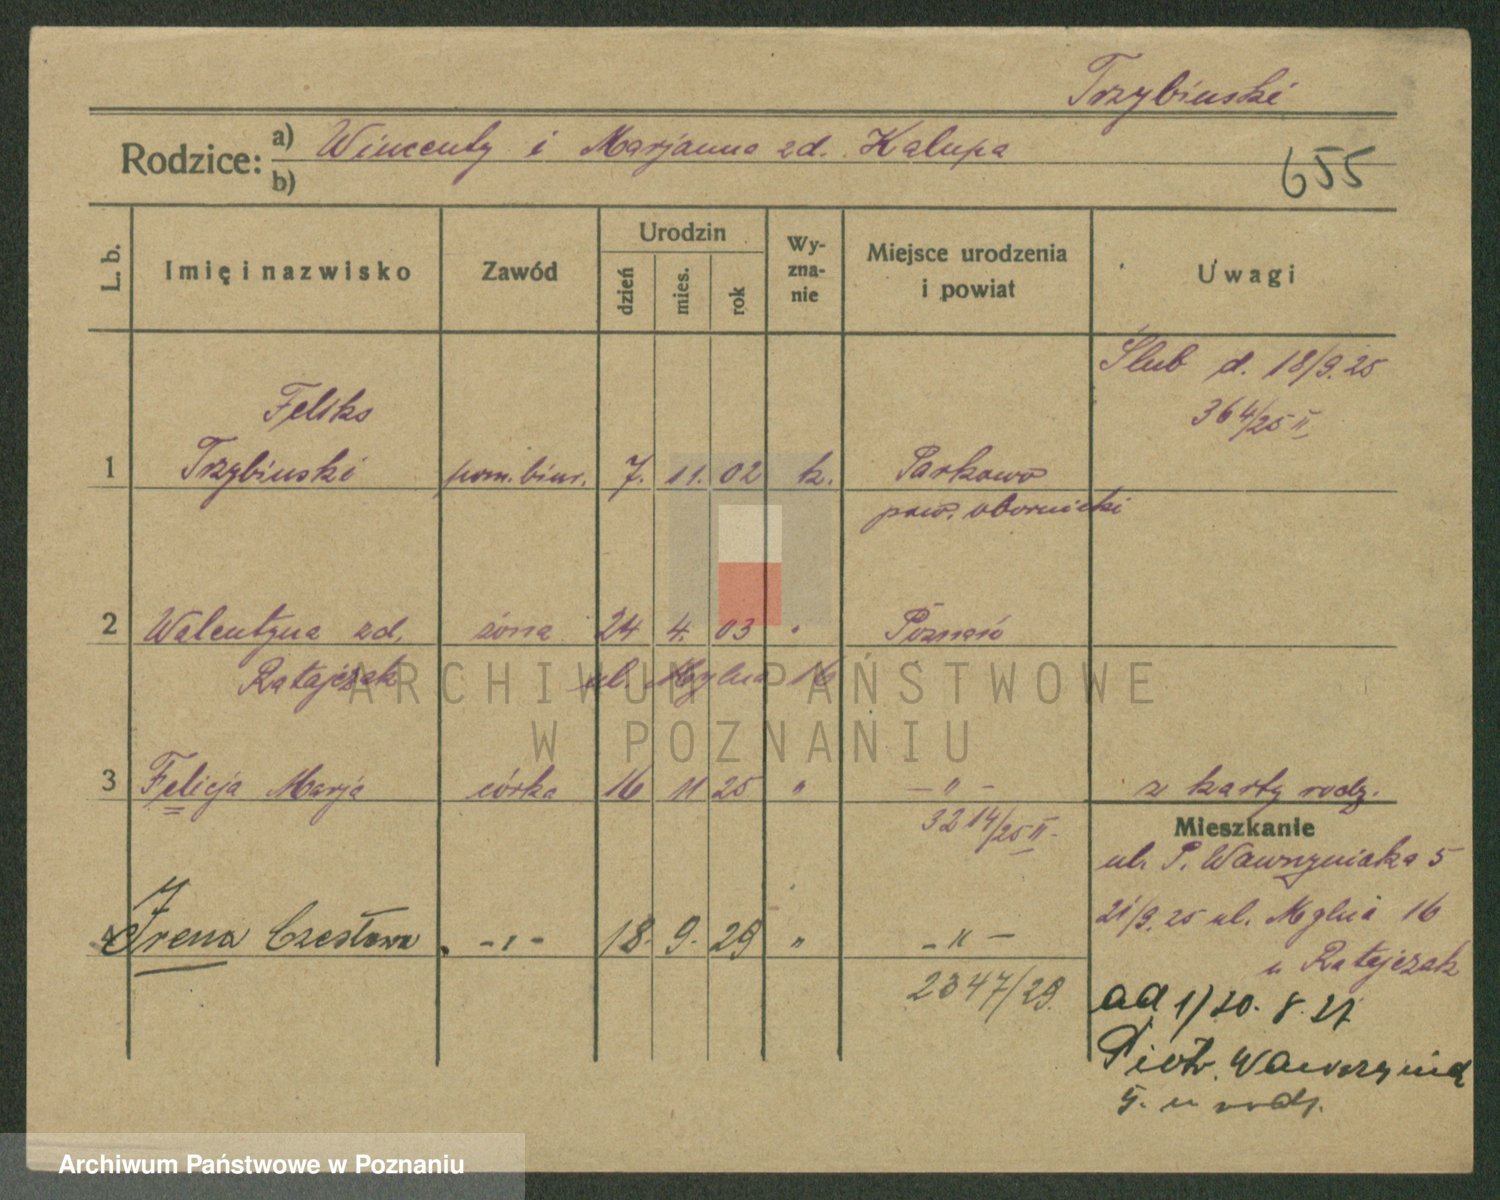 Trzybiński
Rodzice: a) Wincenty i Marjanna zd. Kałupa
b)
655
L. b.
Imię i nazwisko
Zawód
Urodzin
dzień
mies.
rok
Wy-
zna-
nie
Miejsce urodzenia
i powiat
Uwagi
Ślub d. 18/9.25
364/25 II.
Feliks
1 Trzybiński pom. biur. 7. 11. 02 k. Parkowo
pow. obornicki
2 Walentyna zd. żona 24 4. 03 " Poznań
Ratajczak ul. Mglna 16
3 Felicja Marja córka 16 11 25 " - " -
z karty rodz.
3214/25 II-
Mieszkanie
ul. P. Wawrzyniaka 5
21/9.25 ul. Mglna 16
u Ratajczak
4 Irena Czesława - " - 18. 9. 29 " - " -
2347/29.
ad 1/20. 8. 27
Piotr. Wawrzynia
5. u rodz.
ARCHIWUM PAŃSTWOWE
W POZNANIU
Archiwum Państwowe w Poznaniu